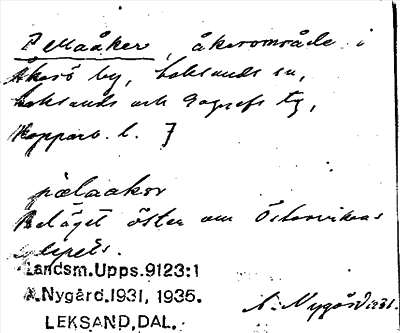 [Pellaåker, åkerområde i
Åkerö by, Leksands sn,
Leksands och Gagnefs tg,
Kopparb. l. ]
pælaakər
Beläget öster om Östervikens
Landsm.Upps.9123:1
A.Nygård.1931, 1935.
LEKSAND,DAL.
A. Nygård 1931.